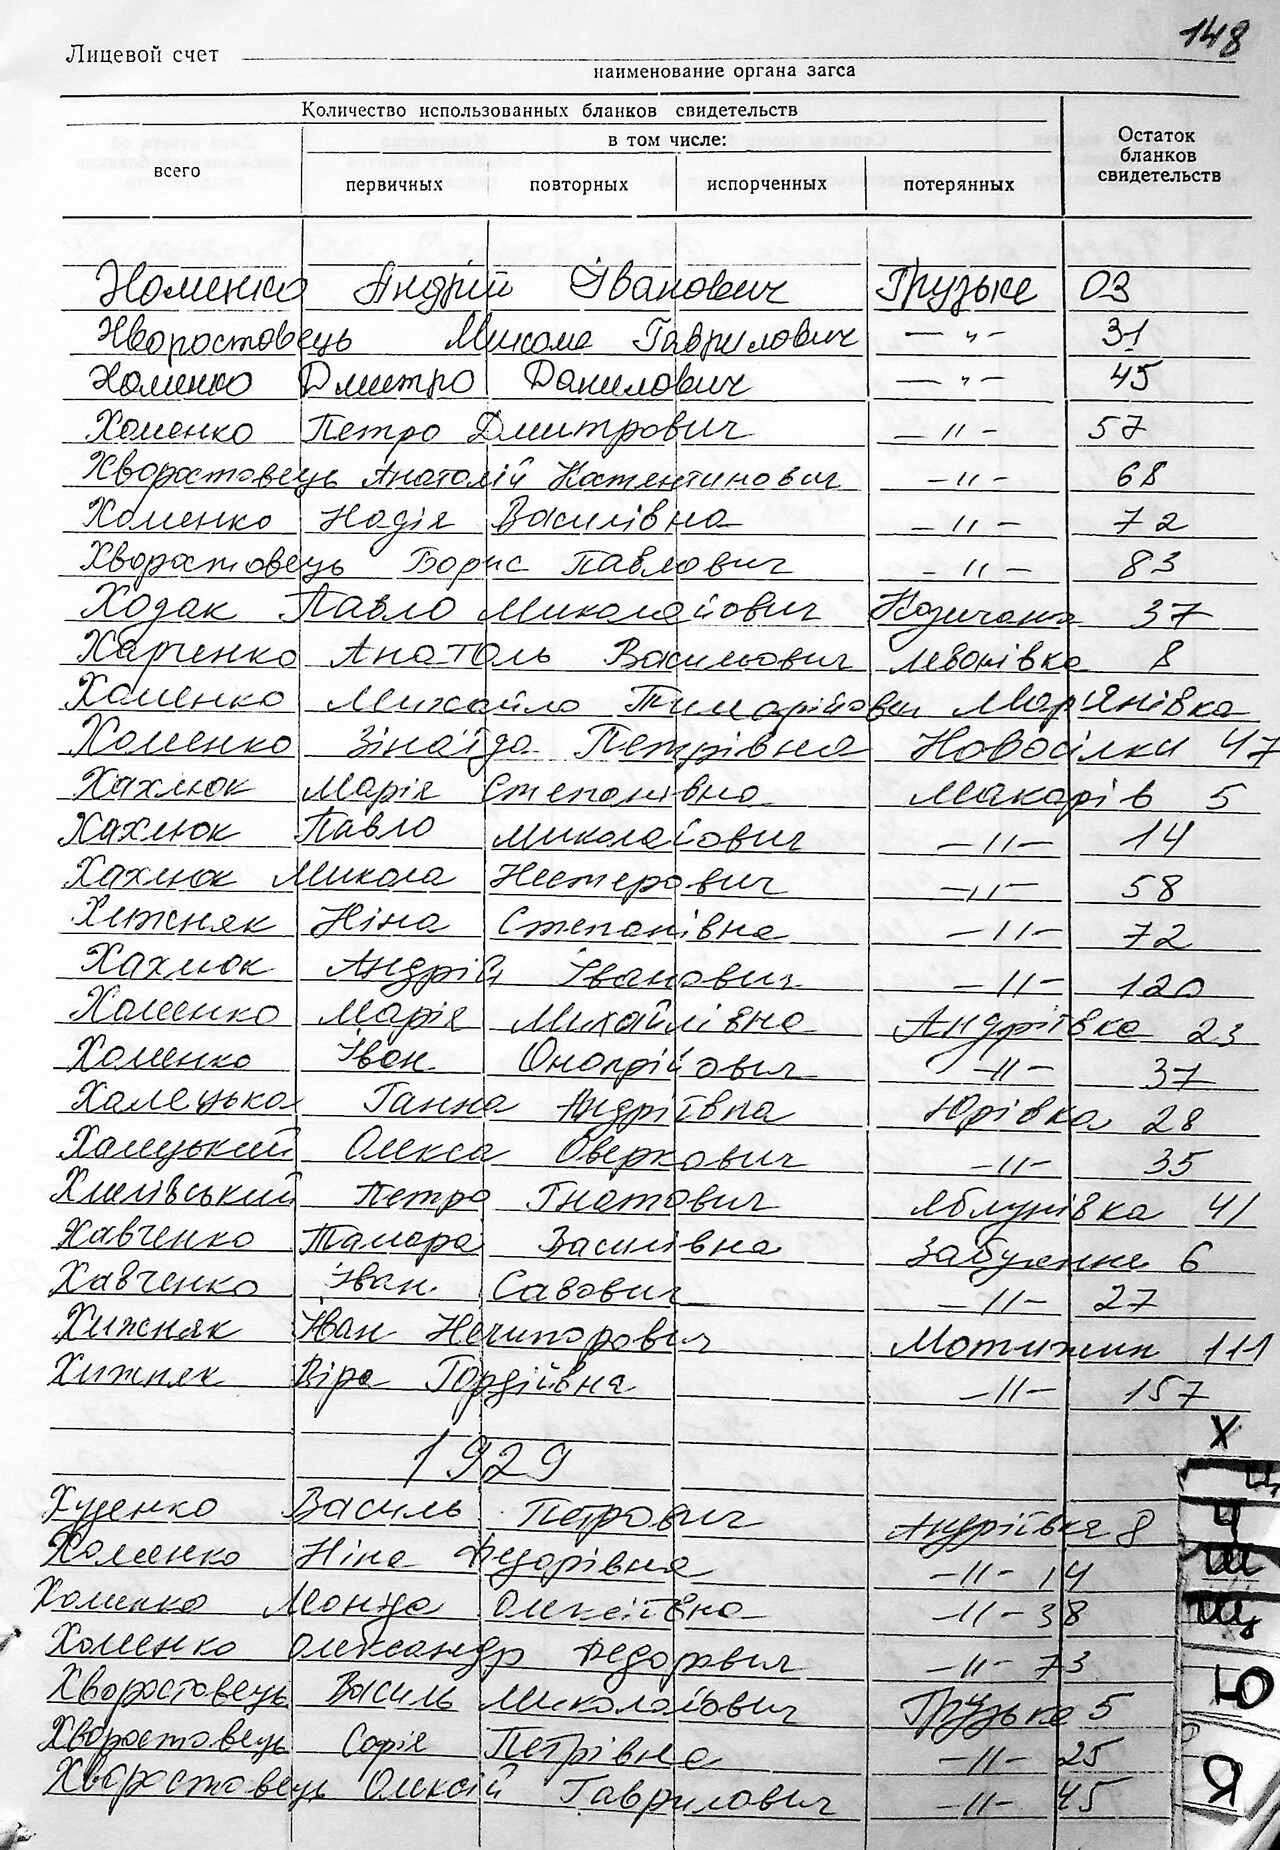 148
Лицевой счет
наименование органа загса
Количество использованных бланков свидетельств
Остаток бланков свидетельств
в том числе:
всего
первичных повторных испорченных потерянных
Хоменко Андрій Іванович Грузьке 03
Хворостовець Микола Гаврилович —〃— 31
Хоменко Дмитро Данилович —〃— 45
Хоменко Петро Дмитрович —〃— 57
Хворостовець Анатолій Костянтинович —〃— 68
Хоменко Надія Василівна —〃— 72
Хворостовець Борис Павлович —〃— 83
Ходак Павло Миколайович Козичанка 37
Харченко Анатоль Васильович Леонівка 8
Хоменко Михайло Мар'янівка
Хоменко Зінаїда Петрівна Новосілки 47
Хахлюк Марія Степанівна Макарів 5
Хахлюк Павло Миколайович —〃— 14
Хахлюк Микола Нестерович —〃— 58
Хижняк Ніна Степанівна —〃— 72
Хахлюк Андрій Іванович —〃— 120
Хоменко Марія Михайлівна Андріївка 23
Хоменко Іван Онопрійович —〃— 37
Халецька Ганна Андріївна Юрівка 28
Халецький Олекса Оверкович —〃— 35
Хмілівський Петро Гнатович Яблунівка 41
Хавченко Тамара Василівна Забуяння 6
Хавченко Іван Савович —〃— 27
Хижняк Іван Нечипорович Мотижин 111
Хижняк Віра Гордіївна —〃— 157
Х
1929
Ц
Василь Петрович Андріївка 8
Ч
Хоменко Ніна Федорівна —〃— 14
Ш
Хоменко Олексіївна —〃— 38
Щ
Хоменко Олександр Федорович —〃— 73
Хворостовець Василь Миколайович Грузьке 5
Ю
Хворостовець Софія Петрівна —〃— 25
Хворостовець Олексій Гаврилович —〃— 45
Я